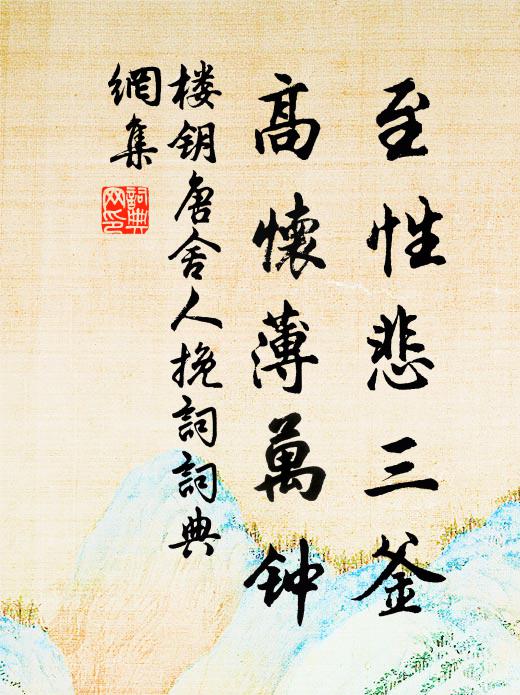 至性悲三釜
高懷薄萬钟
楼钥唐舍人挽詞詞典
網集
詞典網印